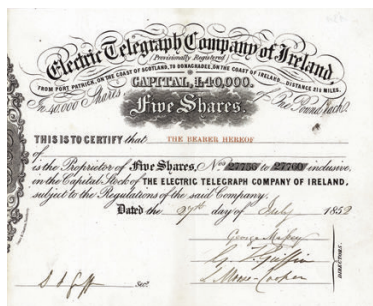 Electric Telegraph Company of Ireland,
Provisionally Registered
FROM PORT PATRICK, ON THE COAST OF SCOTLAND, TO DONAGHADEE, ON THE COAST OF IRELAND. DISTANCE 21½ MILES.
CAPITAL, £40,000.
In 40,000 Shares of One Pound Each.
Five Shares.
THIS IS TO CERTIFY that THE BEARER HEREOF
of
is the Proprietor of Five Shares, Nos 27756 to 27760 inclusive,
in the Capital Stock of THE ELECTRIC TELEGRAPH COMPANY OF IRELAND,
subject to the Regulations of the said Company.
Dated the 27th day of July 1852
George
Griffin
DIRECTORS.
Secy